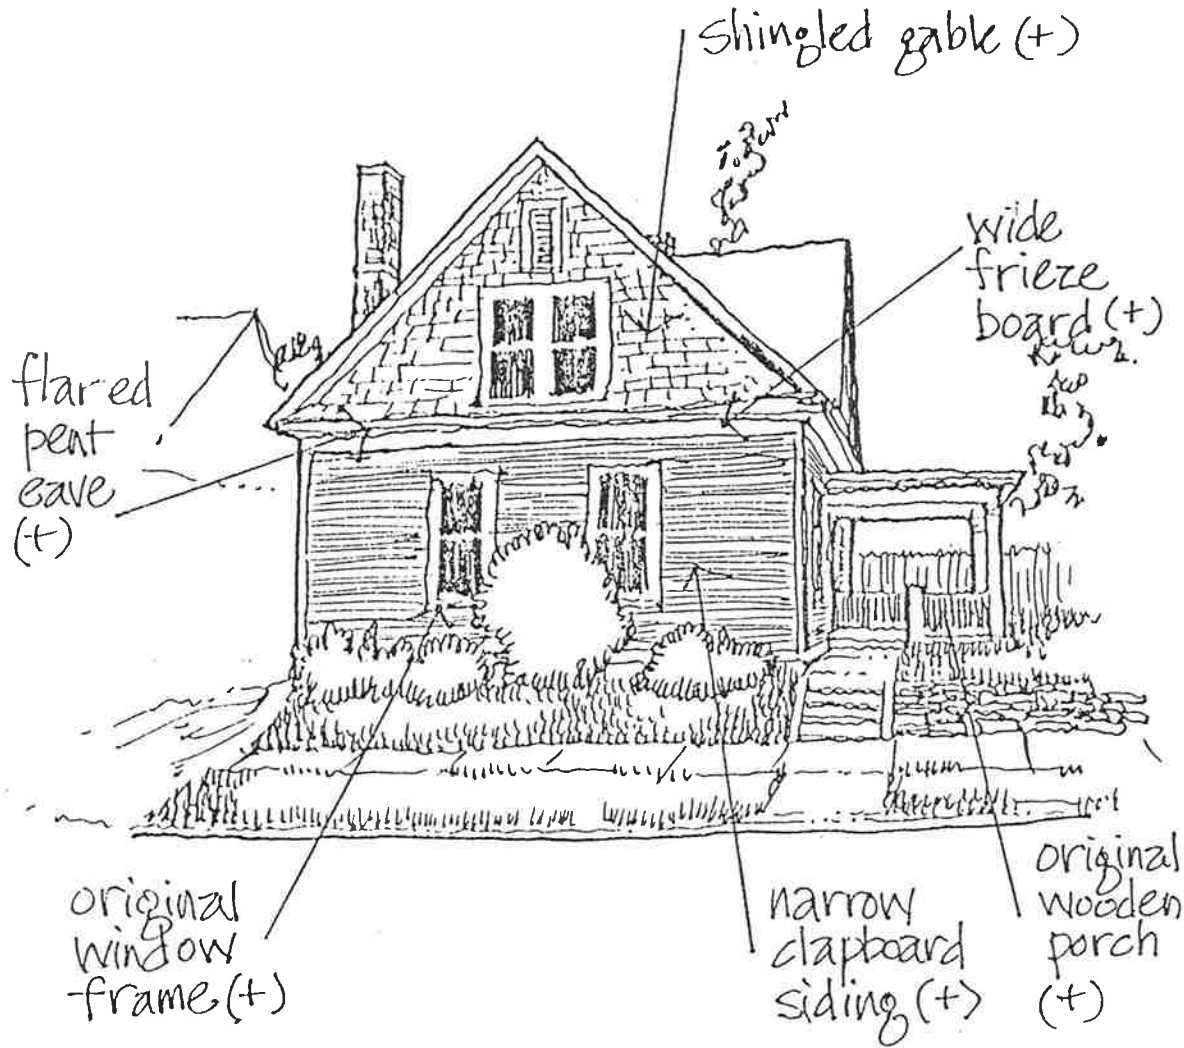 shingled gable (+)
wide
frieze
board (+)
flared
pent
eave
(+)
original
window
frame (+)
narrow
clapboard
siding (+)
original
wooden
porch
(+)